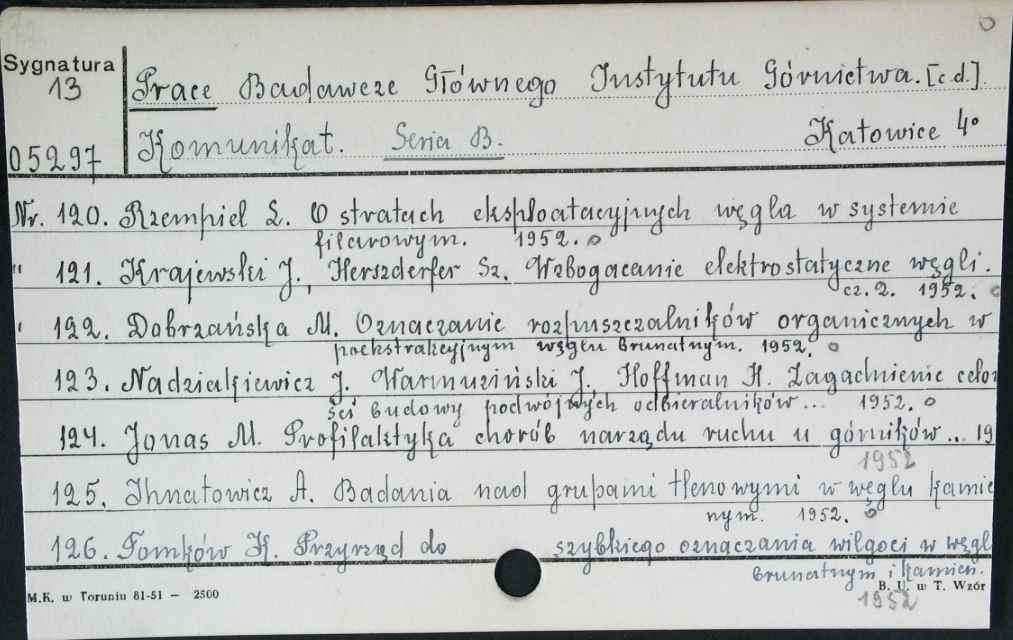 Sygnatura
13
05297
Prace Badawcze Głównego Instytutu Górnictwa. [c.d.].
Komunikat. Seria B. Katowice 4°
Nr. 120. Rzempiel L. O stratach eksploatacyjnych węgla w systemie
filarowym. 1952.
" 121. Krajewski J., Herszderfer Sz. Wzbogacanie elektrostatyczne węgli.
cz. 2. 1952.
" 122. Dobrzańska M. Oznaczanie rozpuszczalników organicznych w
poekstrakcyjnym węglu brunatnym. 1952.
123. Nadziakiewicz J. Warmuziński J., Hoffman H. Zagadnienie celo
ści budowy podwójnych odbieralników... 1952.
124. Jonas M. Profilaktyka chorób narządu ruchu u górników... 19
1952
125. Ihnatowicz A. Badania nad grupami tlenowymi w węglu kamie
nym. 1952.
126. Tomków K. Przyrząd do szybkiego oznaczania wilgoci w węgl
brunatnym i kamien.
1952
M.K. w Toruniu 81-51 — 2500
B. U. w T. Wzór